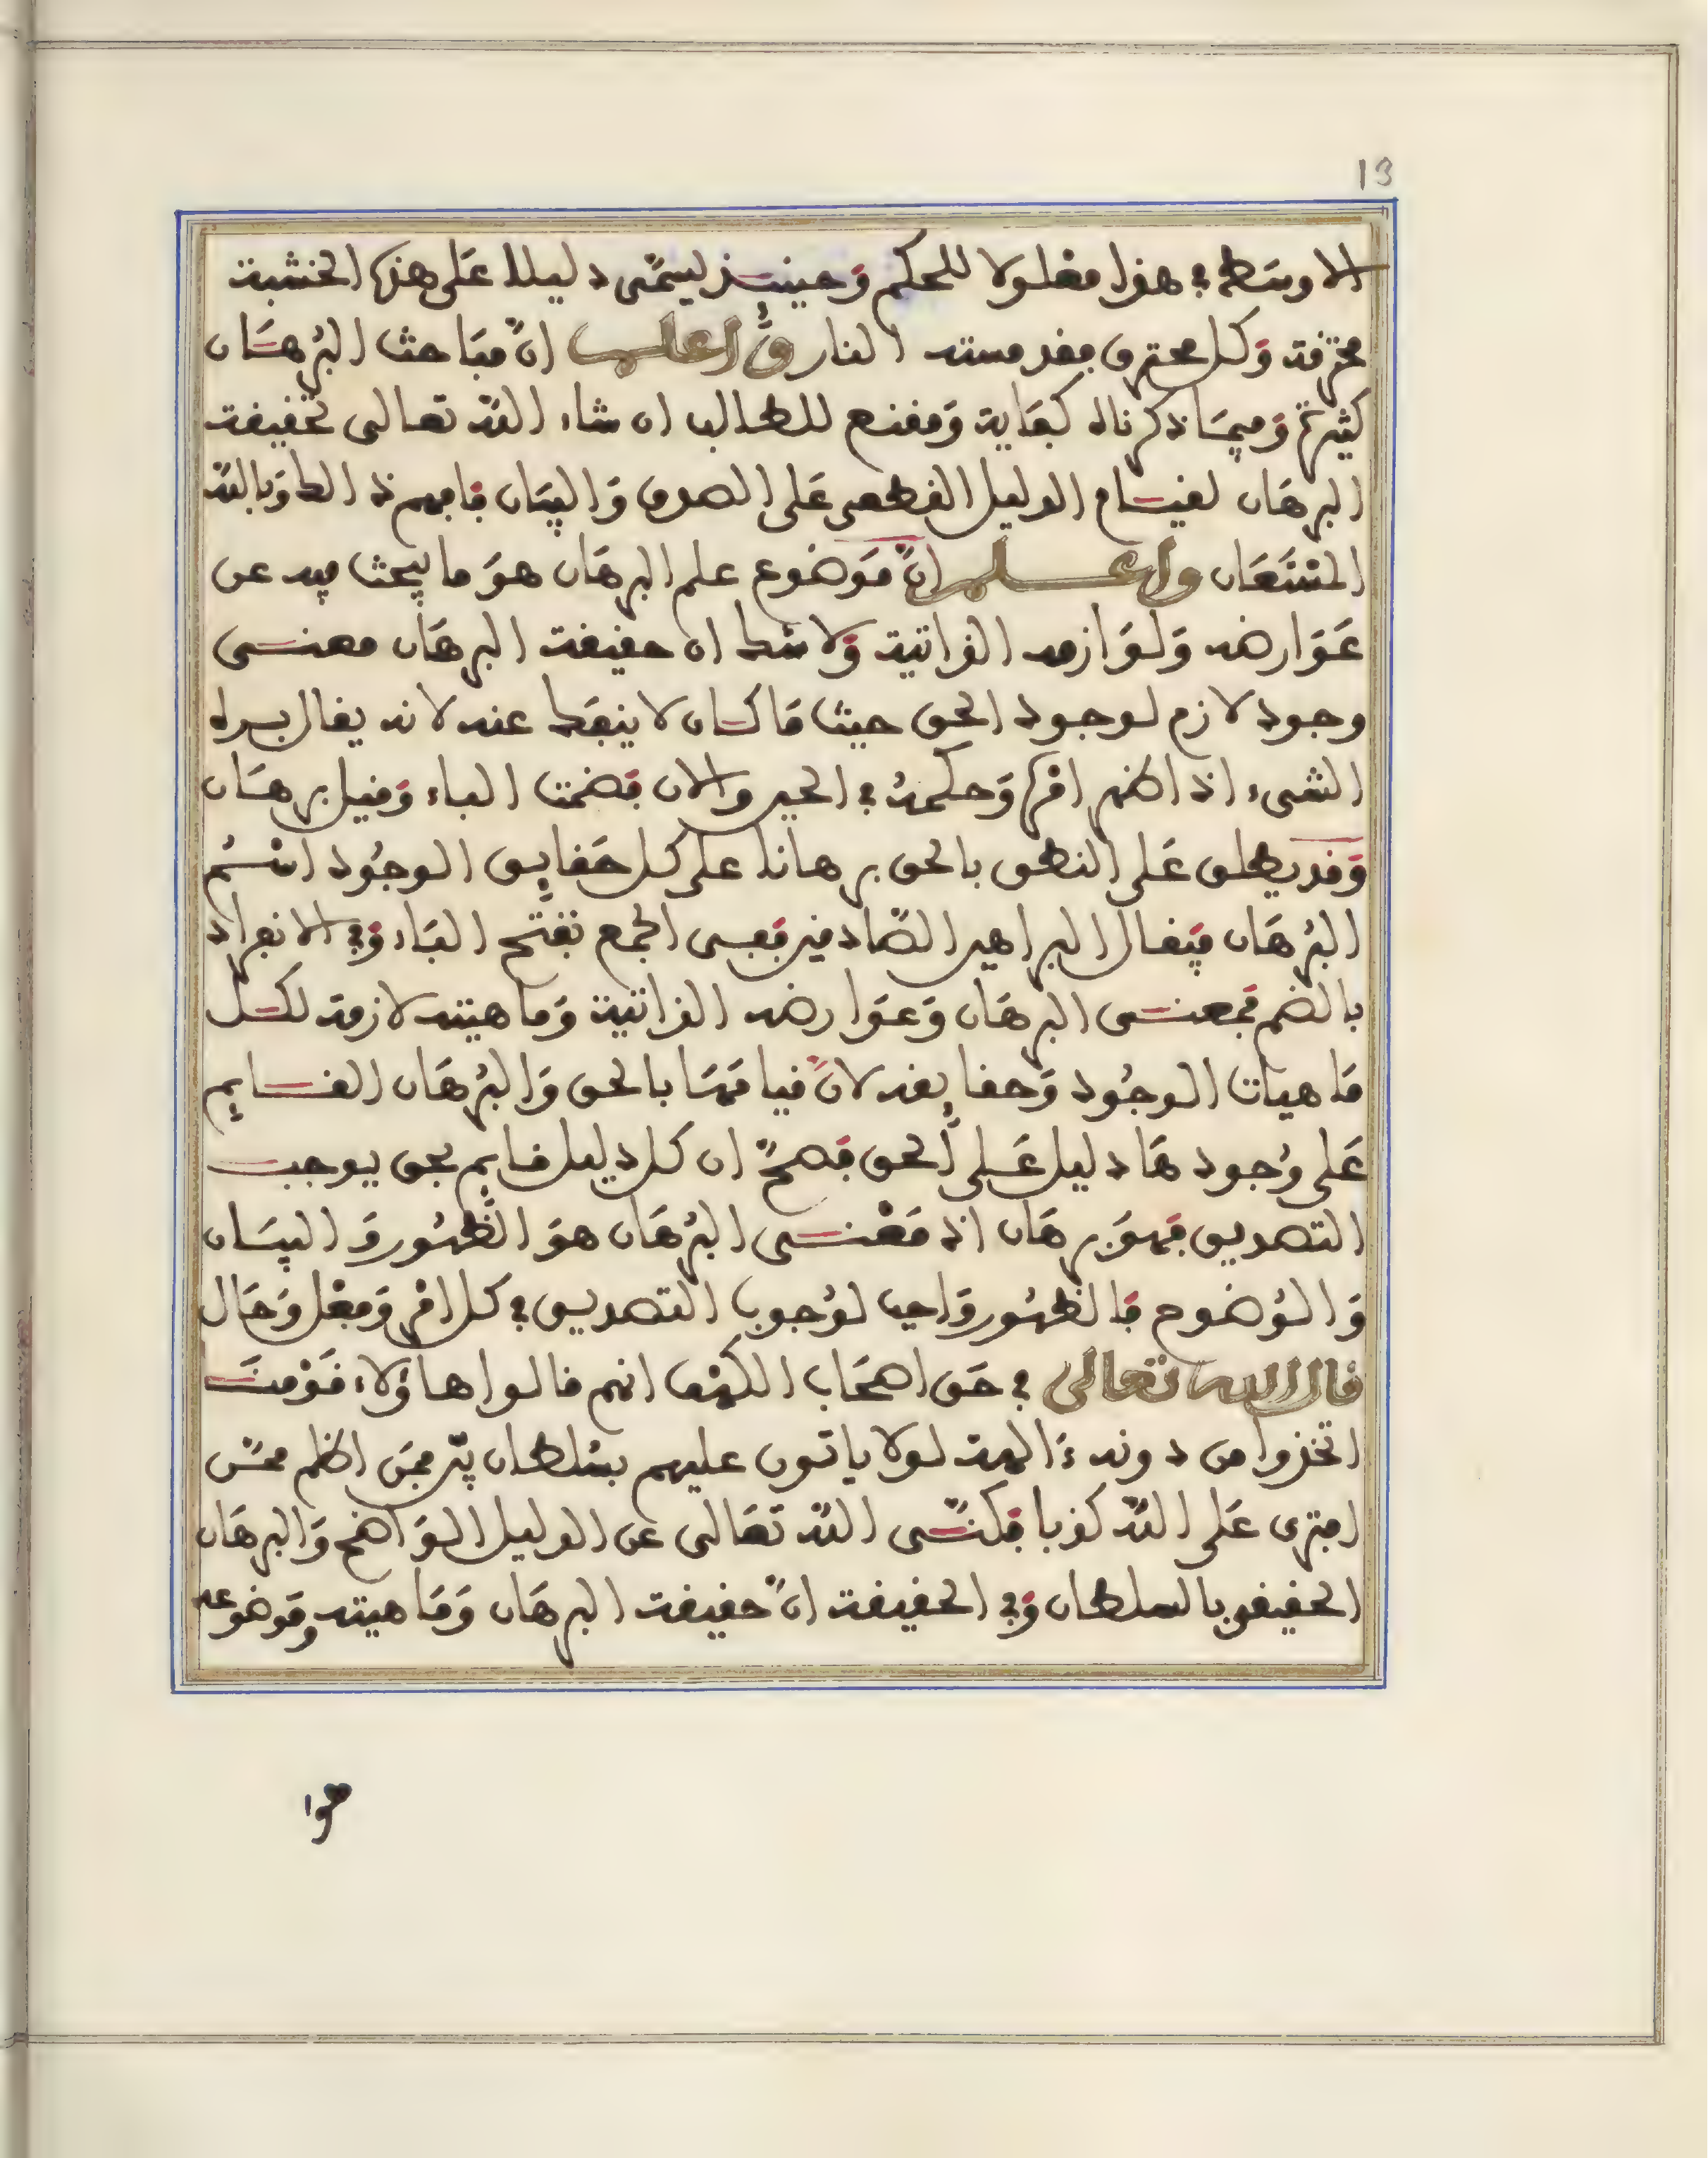 13
الاوسط في هذا معلولا للحكم وَحينئذ ليسمّى دليلا عَلى هذه الخشبة
محترفة وَكل محترق فقد مسته النار وَاعلم انّ مبَاحث البُرهَان
كثيرة وَفيمَا ذكرناه كفَاية وَمقنع للطالب ان شاء اللّه تعالى لحقيقة
البرهَان لقيام الدليل القطعي عَلى الصدق وَالبيَان فافهم ذالك وَباللّه
المسْتَعَان واعلم انّ مَوضوع علم البرهَان هوَ ما يبحث فيه عن
عَوَارضه وَلوَازمه الذاتية وَلا شك ان حقيقة البرهَان معنى
وجود لازم لوجود الحق حيث مَا كان لا ينفك عنه لانه يقال بره
الشيء اذا ظهر امْره وَحكمهُ في الحين والان فضمت الباء وَقيل برهَان
وَقد يطلق عَلى النطق بالحق برهانا على كل حَقايق الوجُود اسْمُ
البُرهَان فيقال البراهين الصّادقين فبقى الجمع بفتح البَاء وَفي الانفراد
بالضم فمعنى البرهَان وَعوَارضه الذاتية وَماهيته لازمة لكل
مَاهيات الوجُود وَحقايقه لانّ قيامَهَا بالحق وَالبُرهَان القايم
عَلى وُجودهَا دليل عَلى الحق فصحّ ان كل دليل قايم بحق يوجب
التصديق فهوَ برهَان اذ مَعْنى البُرهَان هوَ الظّهُور وَالبيَان
وَالوُضوح فالظهُور وَاجب لوُجوب التصديق في كل امْر وَفعْل وَحَال
قال الله تعالى في حَق اصحَاب الكهف انهم قالوا هاؤلاء قَوْمنَا
اتخذوا من دونه ءَالهة لولا ياتون عليهم بسُلطان بيّن فمَن اظلم ممّن
افترى عَلى اللّه كذبا فكنّى اللّه تعَالى عن الدليل الوَاضح وَالبرهَان
الحقيقي بالسلطان وَفي الحقيقة انّ حقيقة البرهَان وَمَاهيته وموضوعه
هوا